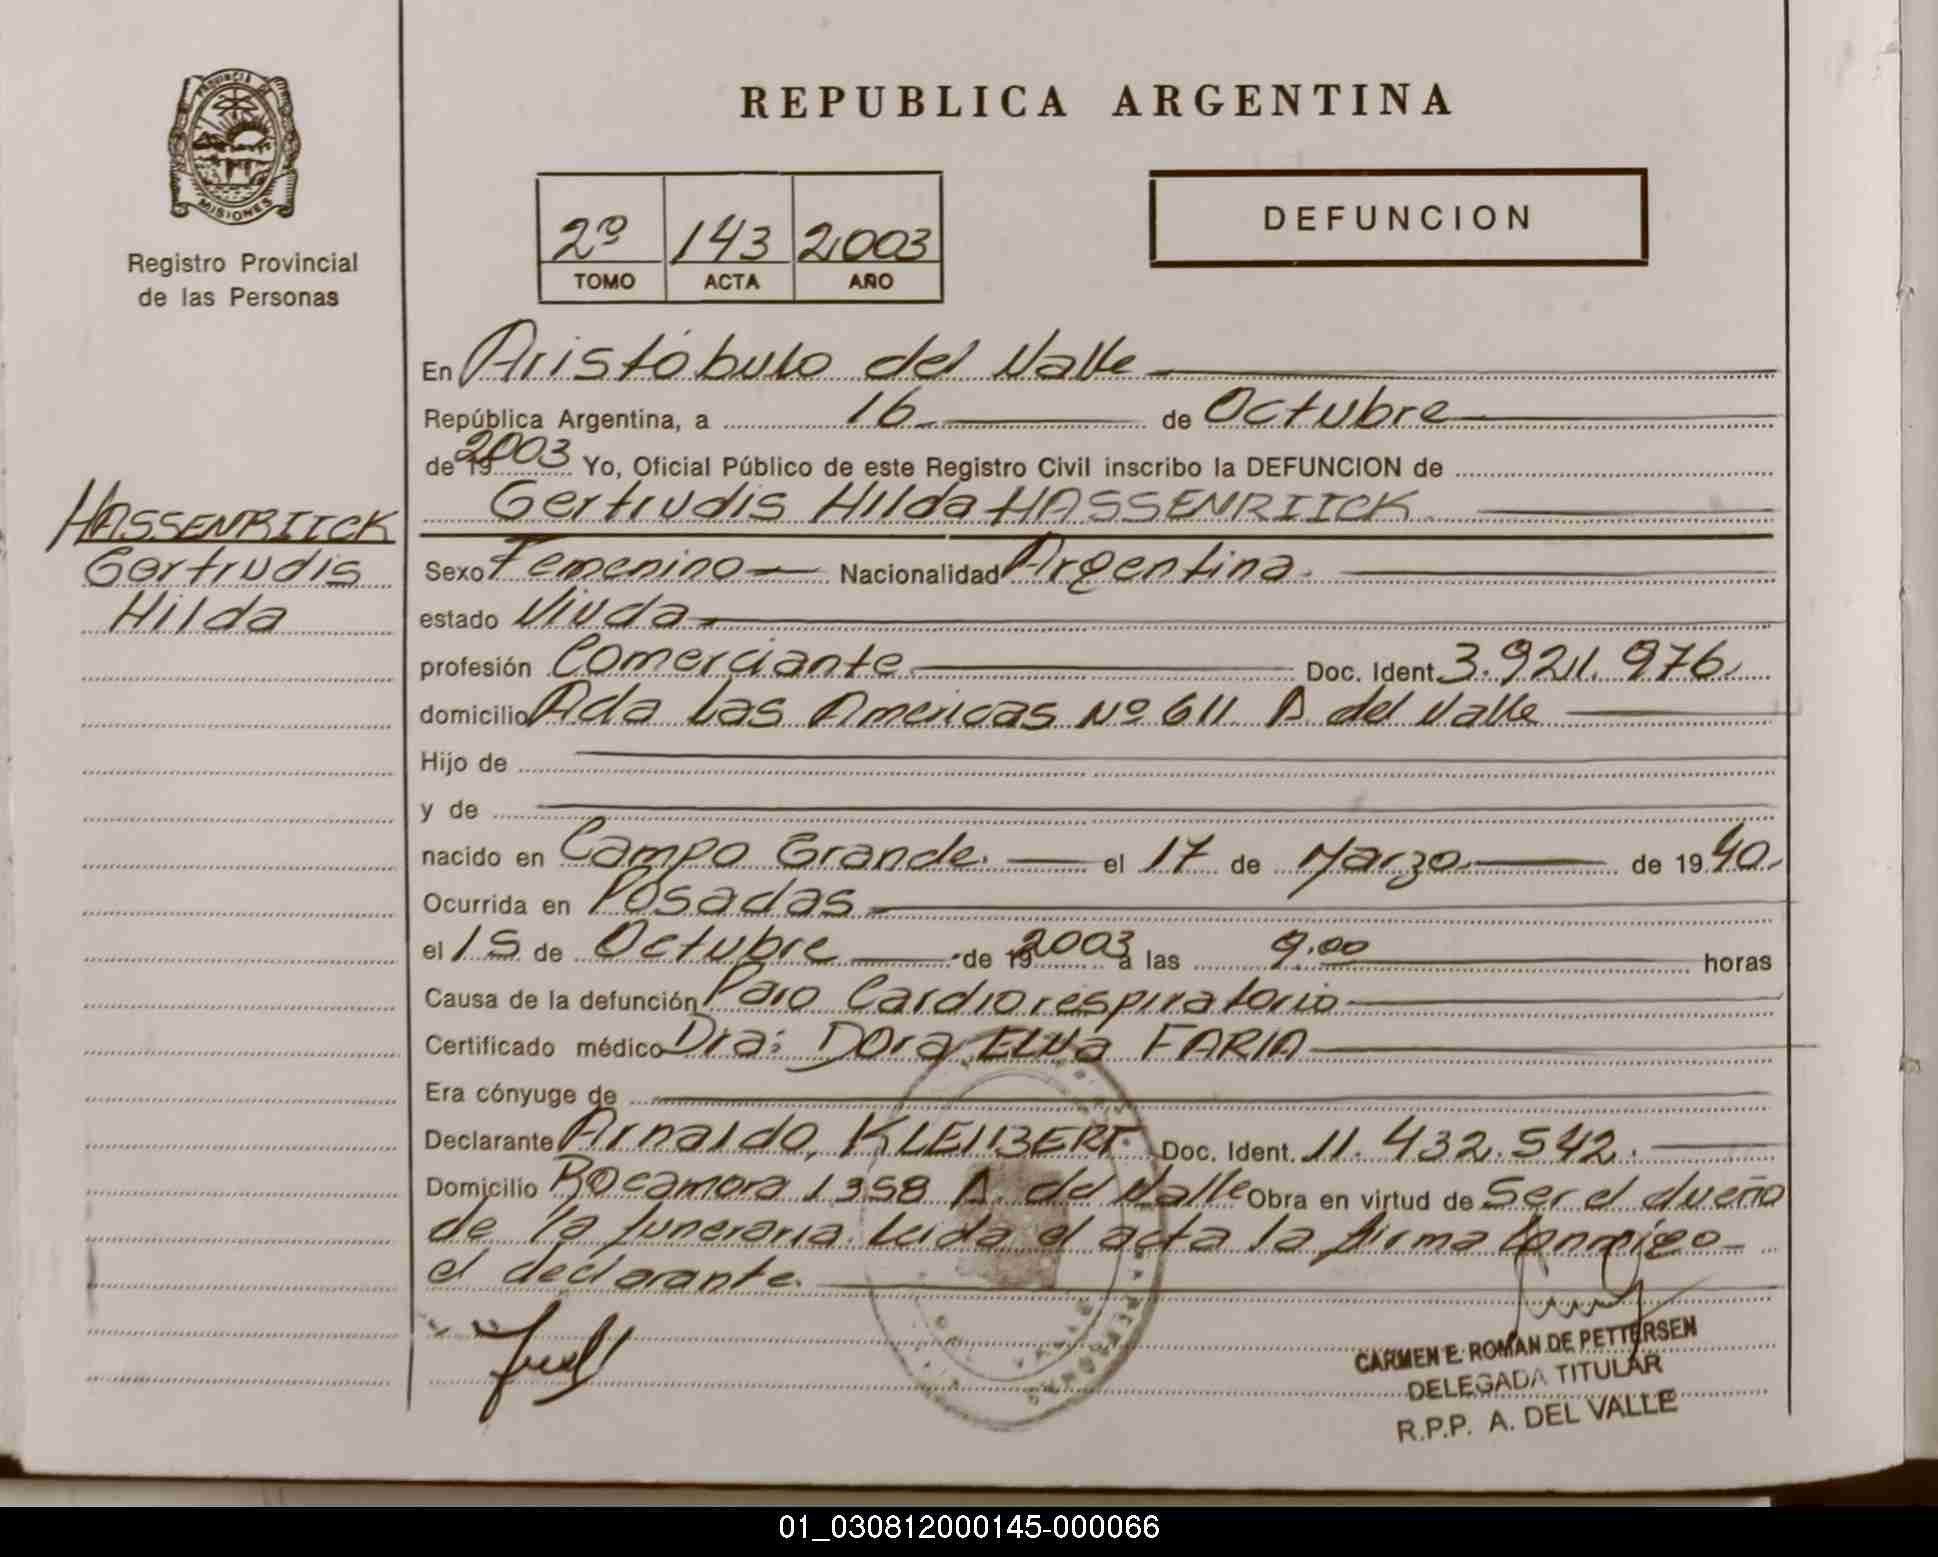 PROVINCIA
MISIONES
Registro Provincial
de las Personas
REPUBLICA ARGENTINA
2º 143 2003
TOMO ACTA AÑO
DEFUNCION
HASSENRIICK
Gertrudis
Hilda
En Aristóbulo del Valle
República Argentina, a 16 de Octubre
de 19 2003 Yo, Oficial Público de este Registro Civil inscribo la DEFUNCION de
Gertrudis Hilda HASSENRIICK
Sexo Femenino Nacionalidad Argentina
estado Viuda
profesión Comerciante Doc. Ident. 3.921.976
domicilio Avda Las Americas Nº 611 A del Valle
Hijo de
y de
nacido en Campo Grande. el 17 de Marzo de 19 40
Ocurrida en Posadas
el 15 de Octubre de 19 2003 a las 9.00 horas
Causa de la defunción Paro Cardiorespiratorio
Certificado médico Dra: Dora Elva FARIA
Era cónyuge de
Declarante Arnaldo, KLEIBERT. Doc. Ident. 11.432.542.
Domicilio Rocamora 1358 A. del Valle Obra en virtud de Ser el dueño
de la funeraria. Leida el acta la firma Conmigo
el declarante.
DEL VALLE
PERSONAS
CARMEN E. ROMAN DE PETTERSEN
DELEGADA TITULAR
R.P.P. A. DEL VALLE
01_030812000145-000066